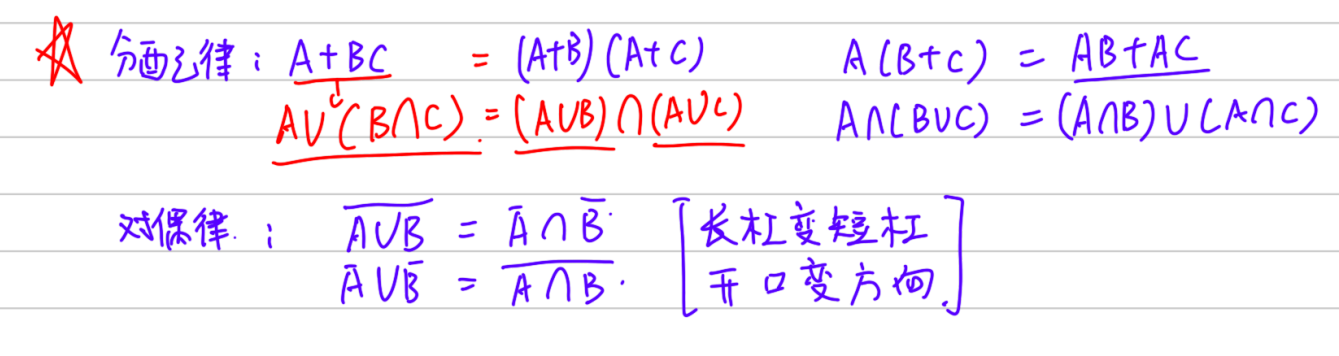 分配律：A+BC = (A+B)(A+C) A(B+C) = AB+AC
A∪(B∩C) = (A∪B)∩(A∪C) A∩(B∪C) = (A∩B)∪(A∩C)
对偶律：A̅∪̅B̅ = A̅∩B̅ [长杠变短杠
A̅∪B̅ = A̅∩̅B̅ 开口变方向]